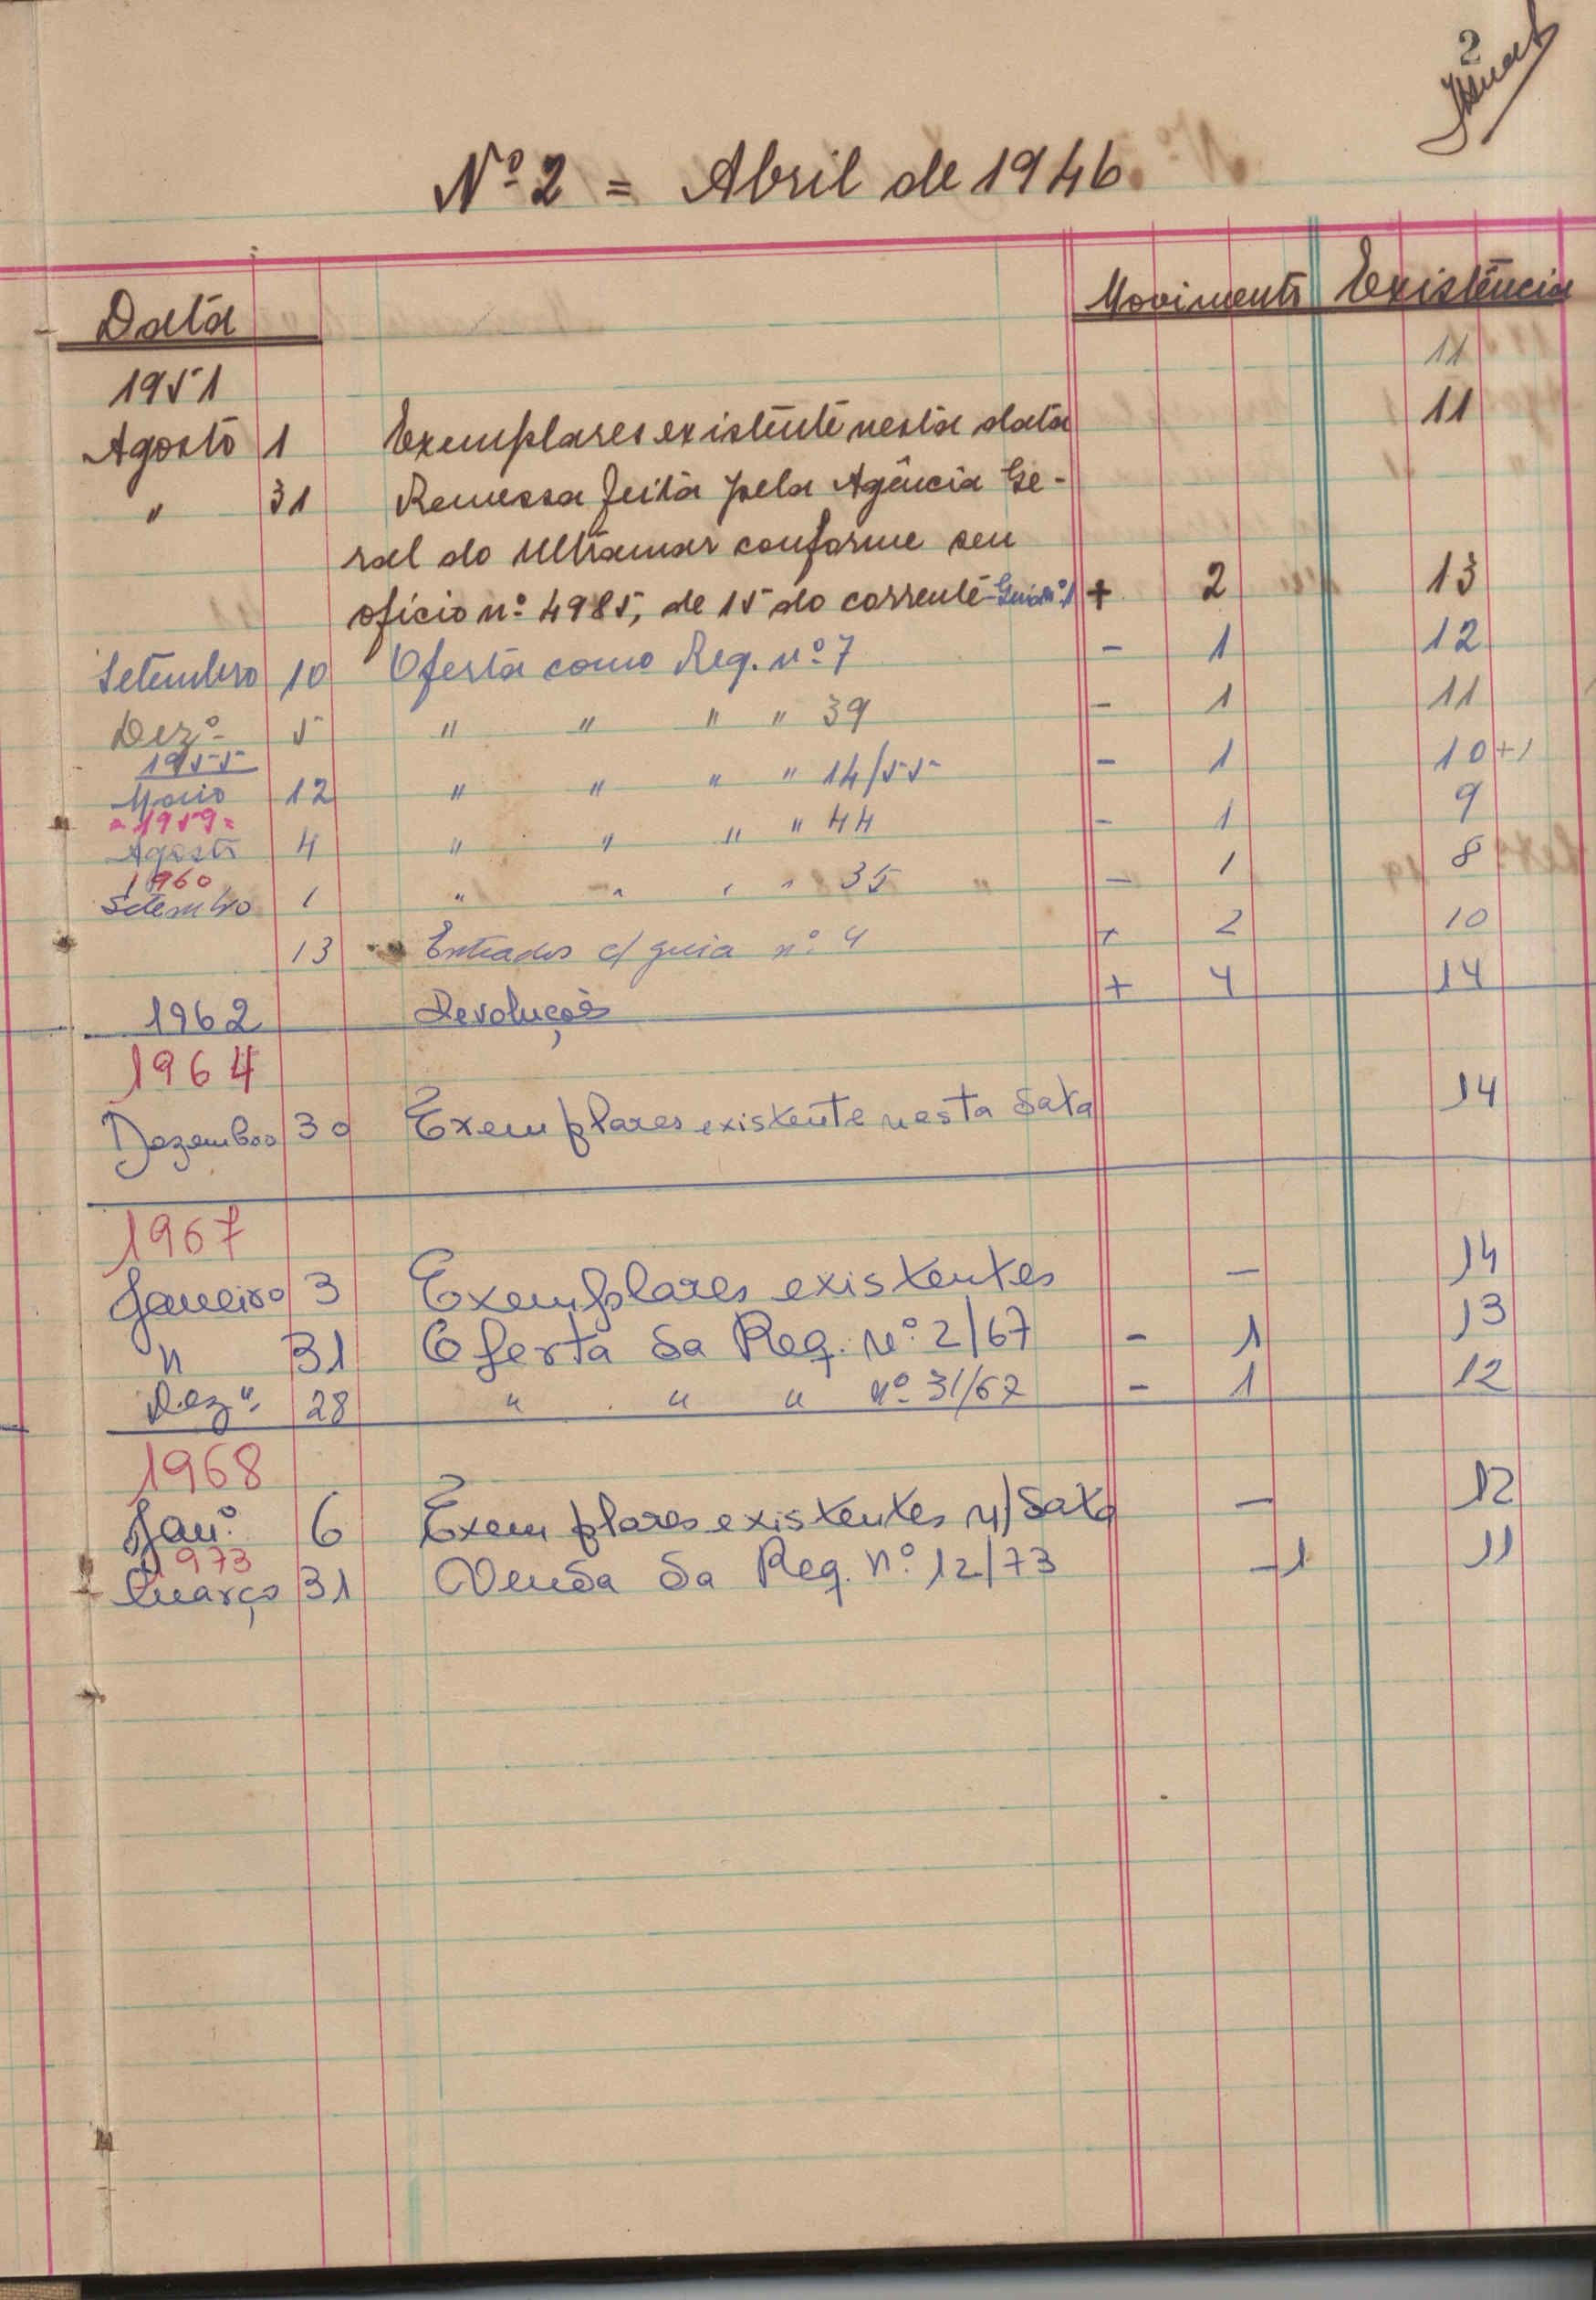 2
Nº 2 = Abril de 1946.
Data Movimento Existência
11
1951
Agosto 1 Exemplares existente nesta data 11
" 31 Remessa feita pela Agência Ge-
ral do Ultramar conforme seu
ofício nº 4985, de 15 do corrente - Guia nº 1 + 2 13
Setembro 10 Oferta como Req. nº 7 - 1 12
Dezº 5 " " " " 39 - 1 11
1955
Maio 12 " " " " 14/55 - 1 10+1
= 1959 =
Agosto 4 " " " " 44 - 1 9
1960
Setembro 1 " " " " 35 " - 1 8
13 Entrados c/ guia nº 4 + 2 10
1962 Devoluções + 4 14
1964
Dezembro 30 Exemplares existente nesta data 14
1967
Janeiro 3 Exemplares existentes - 14
" 31 Oferta da Req. Nº 2/67 - 1 13
Dezº 28 " " " Nº 31/67 - 1 12
1968
Janº 6 Exemplares existentes n/data - 12
1973
Março 31 Venda da Req. nº 12/73 -1 11